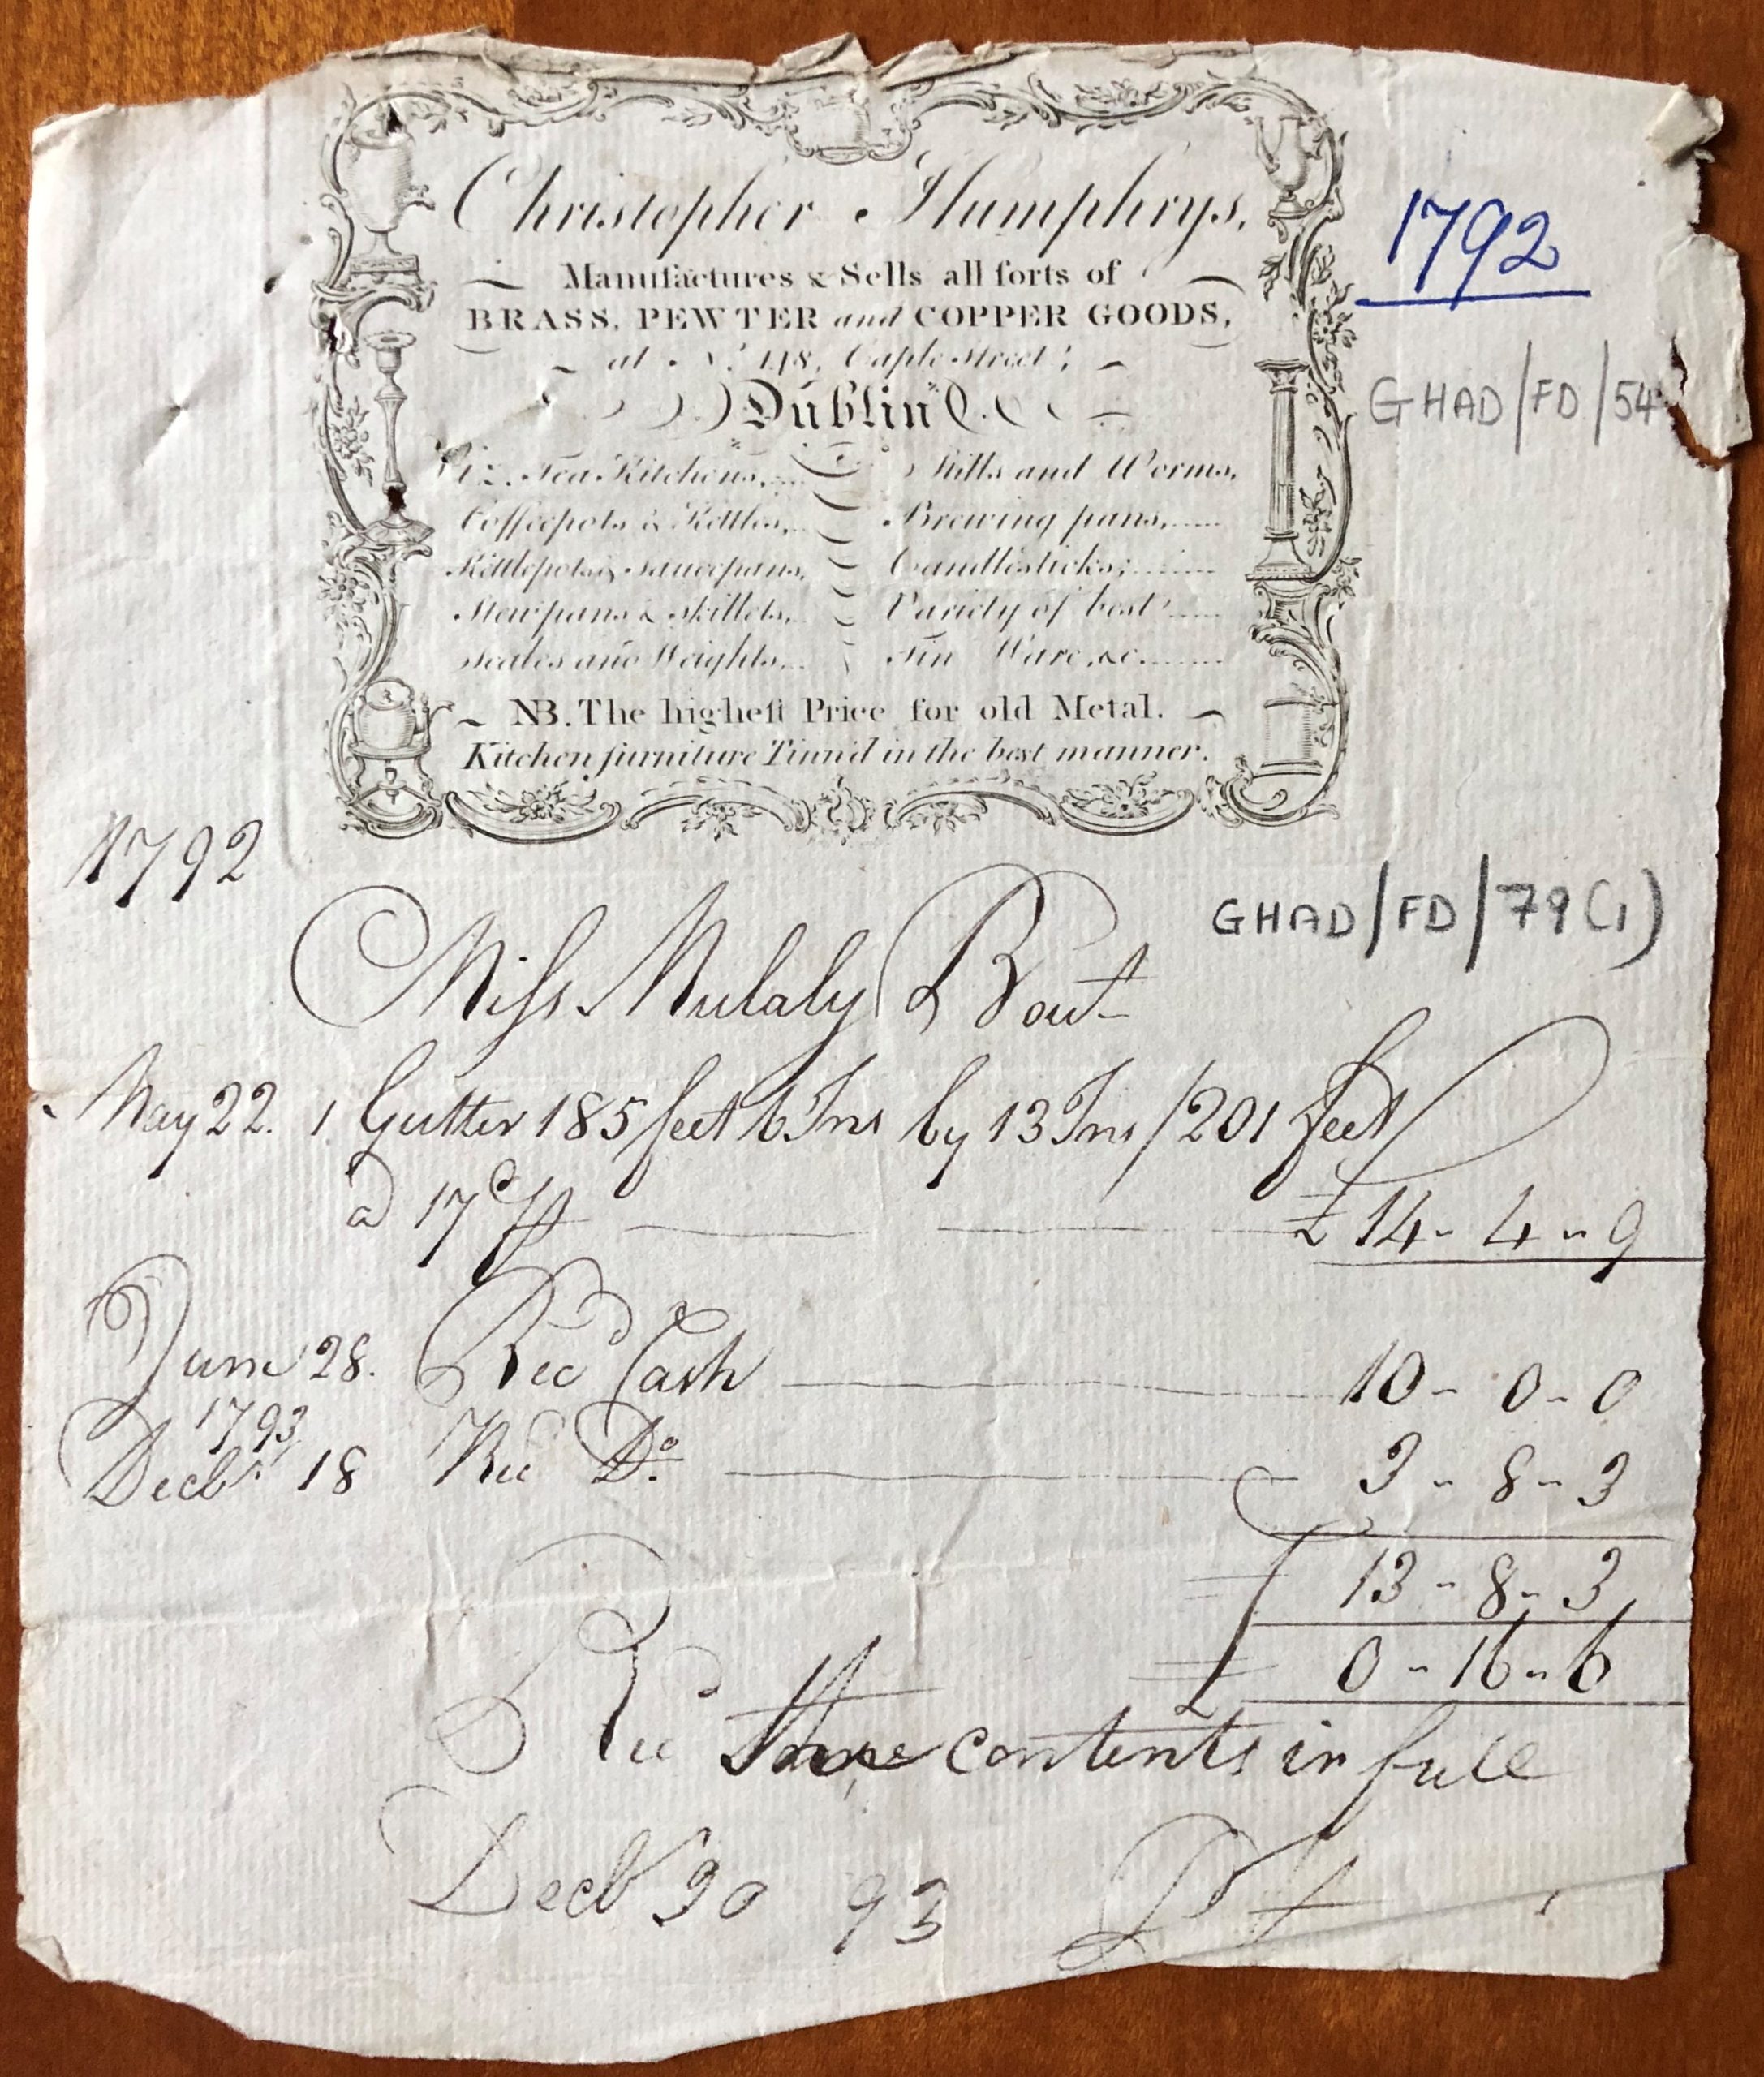 Christopher Humphrys.
Manufactures & Sells all ſorts of
BRASS, PEWTER and COPPER GOODS,
at No. 148, Caple Street;
Dublin.
Viz. Tea Kitchens, Stills and Worms,
Coffeepots & Kettles, Brewing pans,
Kittlepots & Saucepans, Candlesticks;
Stewpans & Skillets, Variety of best
Scales and Weights, Tin Ware, &c.
NB. The higheſt Price for old Metal.
Kitchen furniture Tinn'd in the best manner.
1792
GHAD/FD/54
1792
GHAD/FD/79(1)
Miſs Mulaly Bout
May 22. 1 Gutter 185 feet 6 Ins by 13 Ins / 201 feet
a 17d £14 - 4 - 9
June 28. Recd Cash 10 - 0 - 0
1793
Decbr 18 Recd Do. 3 - 8 - 3
13 - 8 - 3
£ 0 - 16 - 6
Recd the contents in full
Decbr 30 93